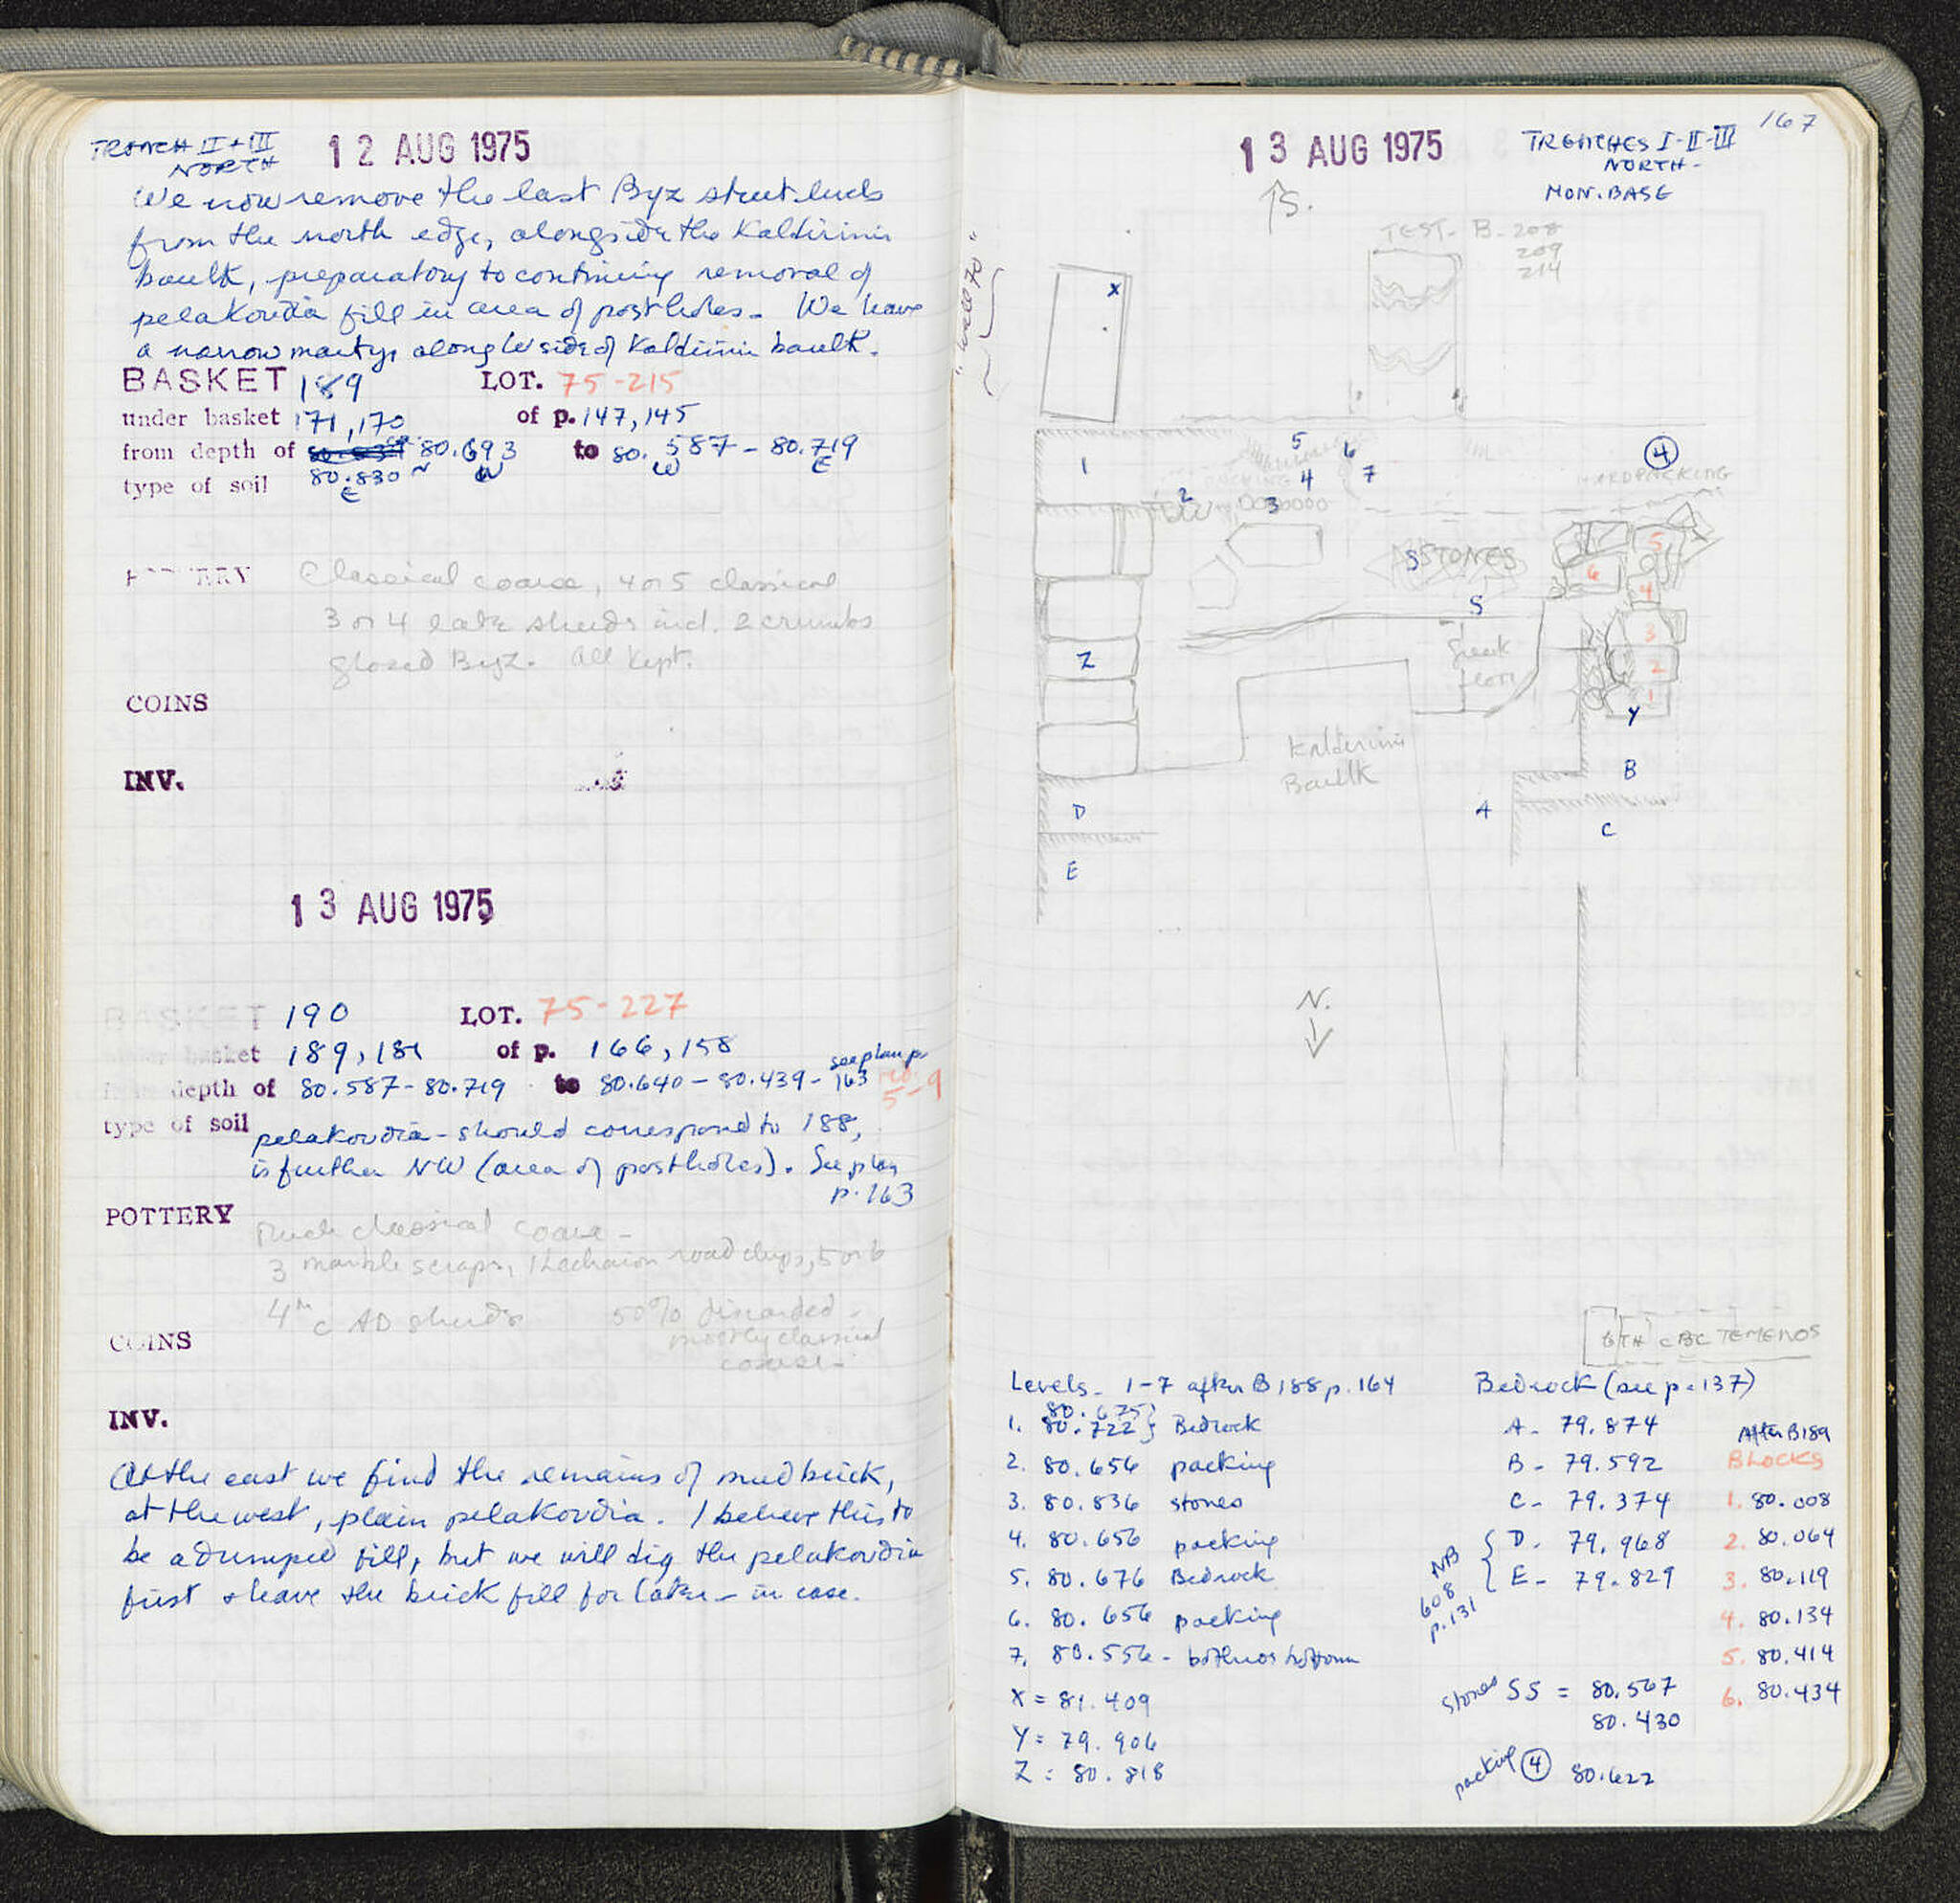 TRENCH II + III
NORTH
12 AUG 1975
We now remove the last Byz street
from the north edge, alongside the Kaldirimi
baulk, preparatory to continuing removal of
pelakovdia fill in area of postholes. We leave
a narrow martyr along W side of Kaldirimi baulk.
BASKET 189 LOT. 75-215
under basket 171, 170 of p. 147, 145
from depth of 80.693 to 80.587 - 80.719
W W E
type of soil 80.830
E
POTTERY Classical coarse, 4 or 5 classical
3 or 4 late sherds incl. 2 crumbs
glazed Byz. All kept.
COINS
INV.
13 AUG 1975
BASKET 190 LOT. 75-227
under basket 189, 181 of p. 166, 158
from depth of 80.587-80.719 to 80.640-80.439- see plan p.
163 red
5-9
type of soil
pelakovdia - should correspond to 188,
is further NW (area of postholes). See plan
p. 163
POTTERY Much classical coarse -
3 marble scraps, 1 Lechaion road chips, 5 or 6
4th c AD sherds 50% discarded -
mostly classical
coarse -
COINS
INV.
At the east we find the remains of mud brick,
at the west, plain pelakovdia. I believe this to
be a dumped fill, but we will dig the pelakovdia
first + leave the brick fill for later - in case.
13 AUG 1975
TRENCHES I-II-III
NORTH-
MON. BASE
167
S.
TEST- B-208
209
214
"wall 70"
X
1
5
6
4
7
4
HARDPACKING
PACKING
2
3
S STONES
S
5
6
4
3
2
1
Z
Greek
floor
Y
Kaldirimi
Baulk
B
D
A
C
E
N.
6TH c BC TEMENOS
Levels - 1-7 after B188 p. 164
80.675
1. 80.722 } Bedrock
2. 80.656 packing
3. 80.836 stones
4. 80.656 packing
5. 80.676 Bedrock
6. 80.656 packing
7. 80.556 - bothros bottom
X = 81.409
Y = 79.906
Z = 80.818
Bedrock (see p. 137)
A - 79.874
B - 79.592
C - 79.374
D. 79.968
E - 79.829
NB
608
p. 131
stones SS = 80.567
80.430
packing 4 80.622
After B189
BLOCKS
1. 80.008
2. 80.064
3. 80.119
4. 80.134
5. 80.414
6. 80.434